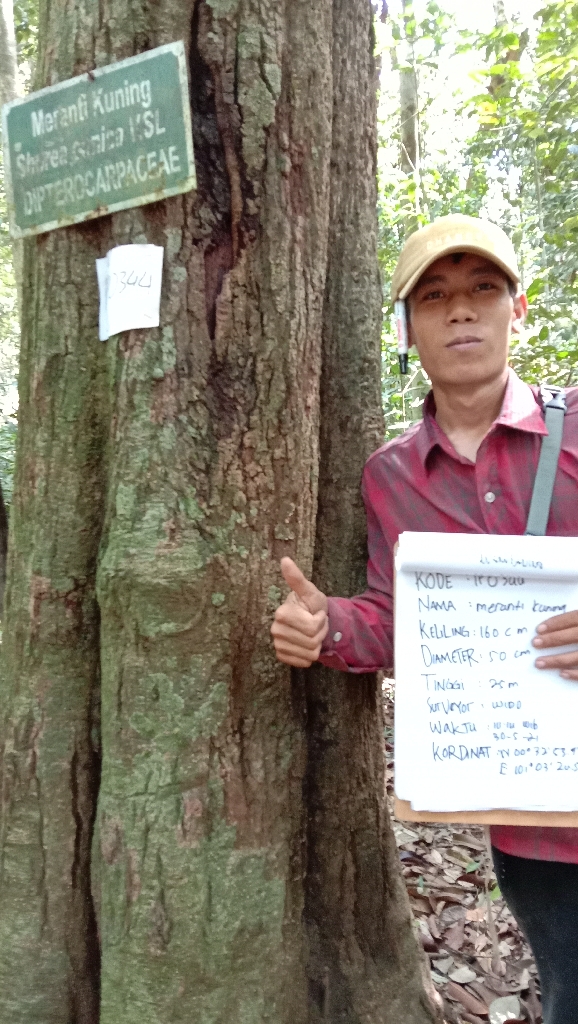 Meranti Kuning
DIPTEROCARPACEAE
344
KODE :
NAMA : meranti kuning
KELILING : 160 cm
DIAMETER : 50 cm
TINGGI : 25 m
SURVEYOR : WIDO
WAKTU : 10:10 WIB
30-5-21
KORDINAT N 00° 32' 53.
E 101° 03' 20.5